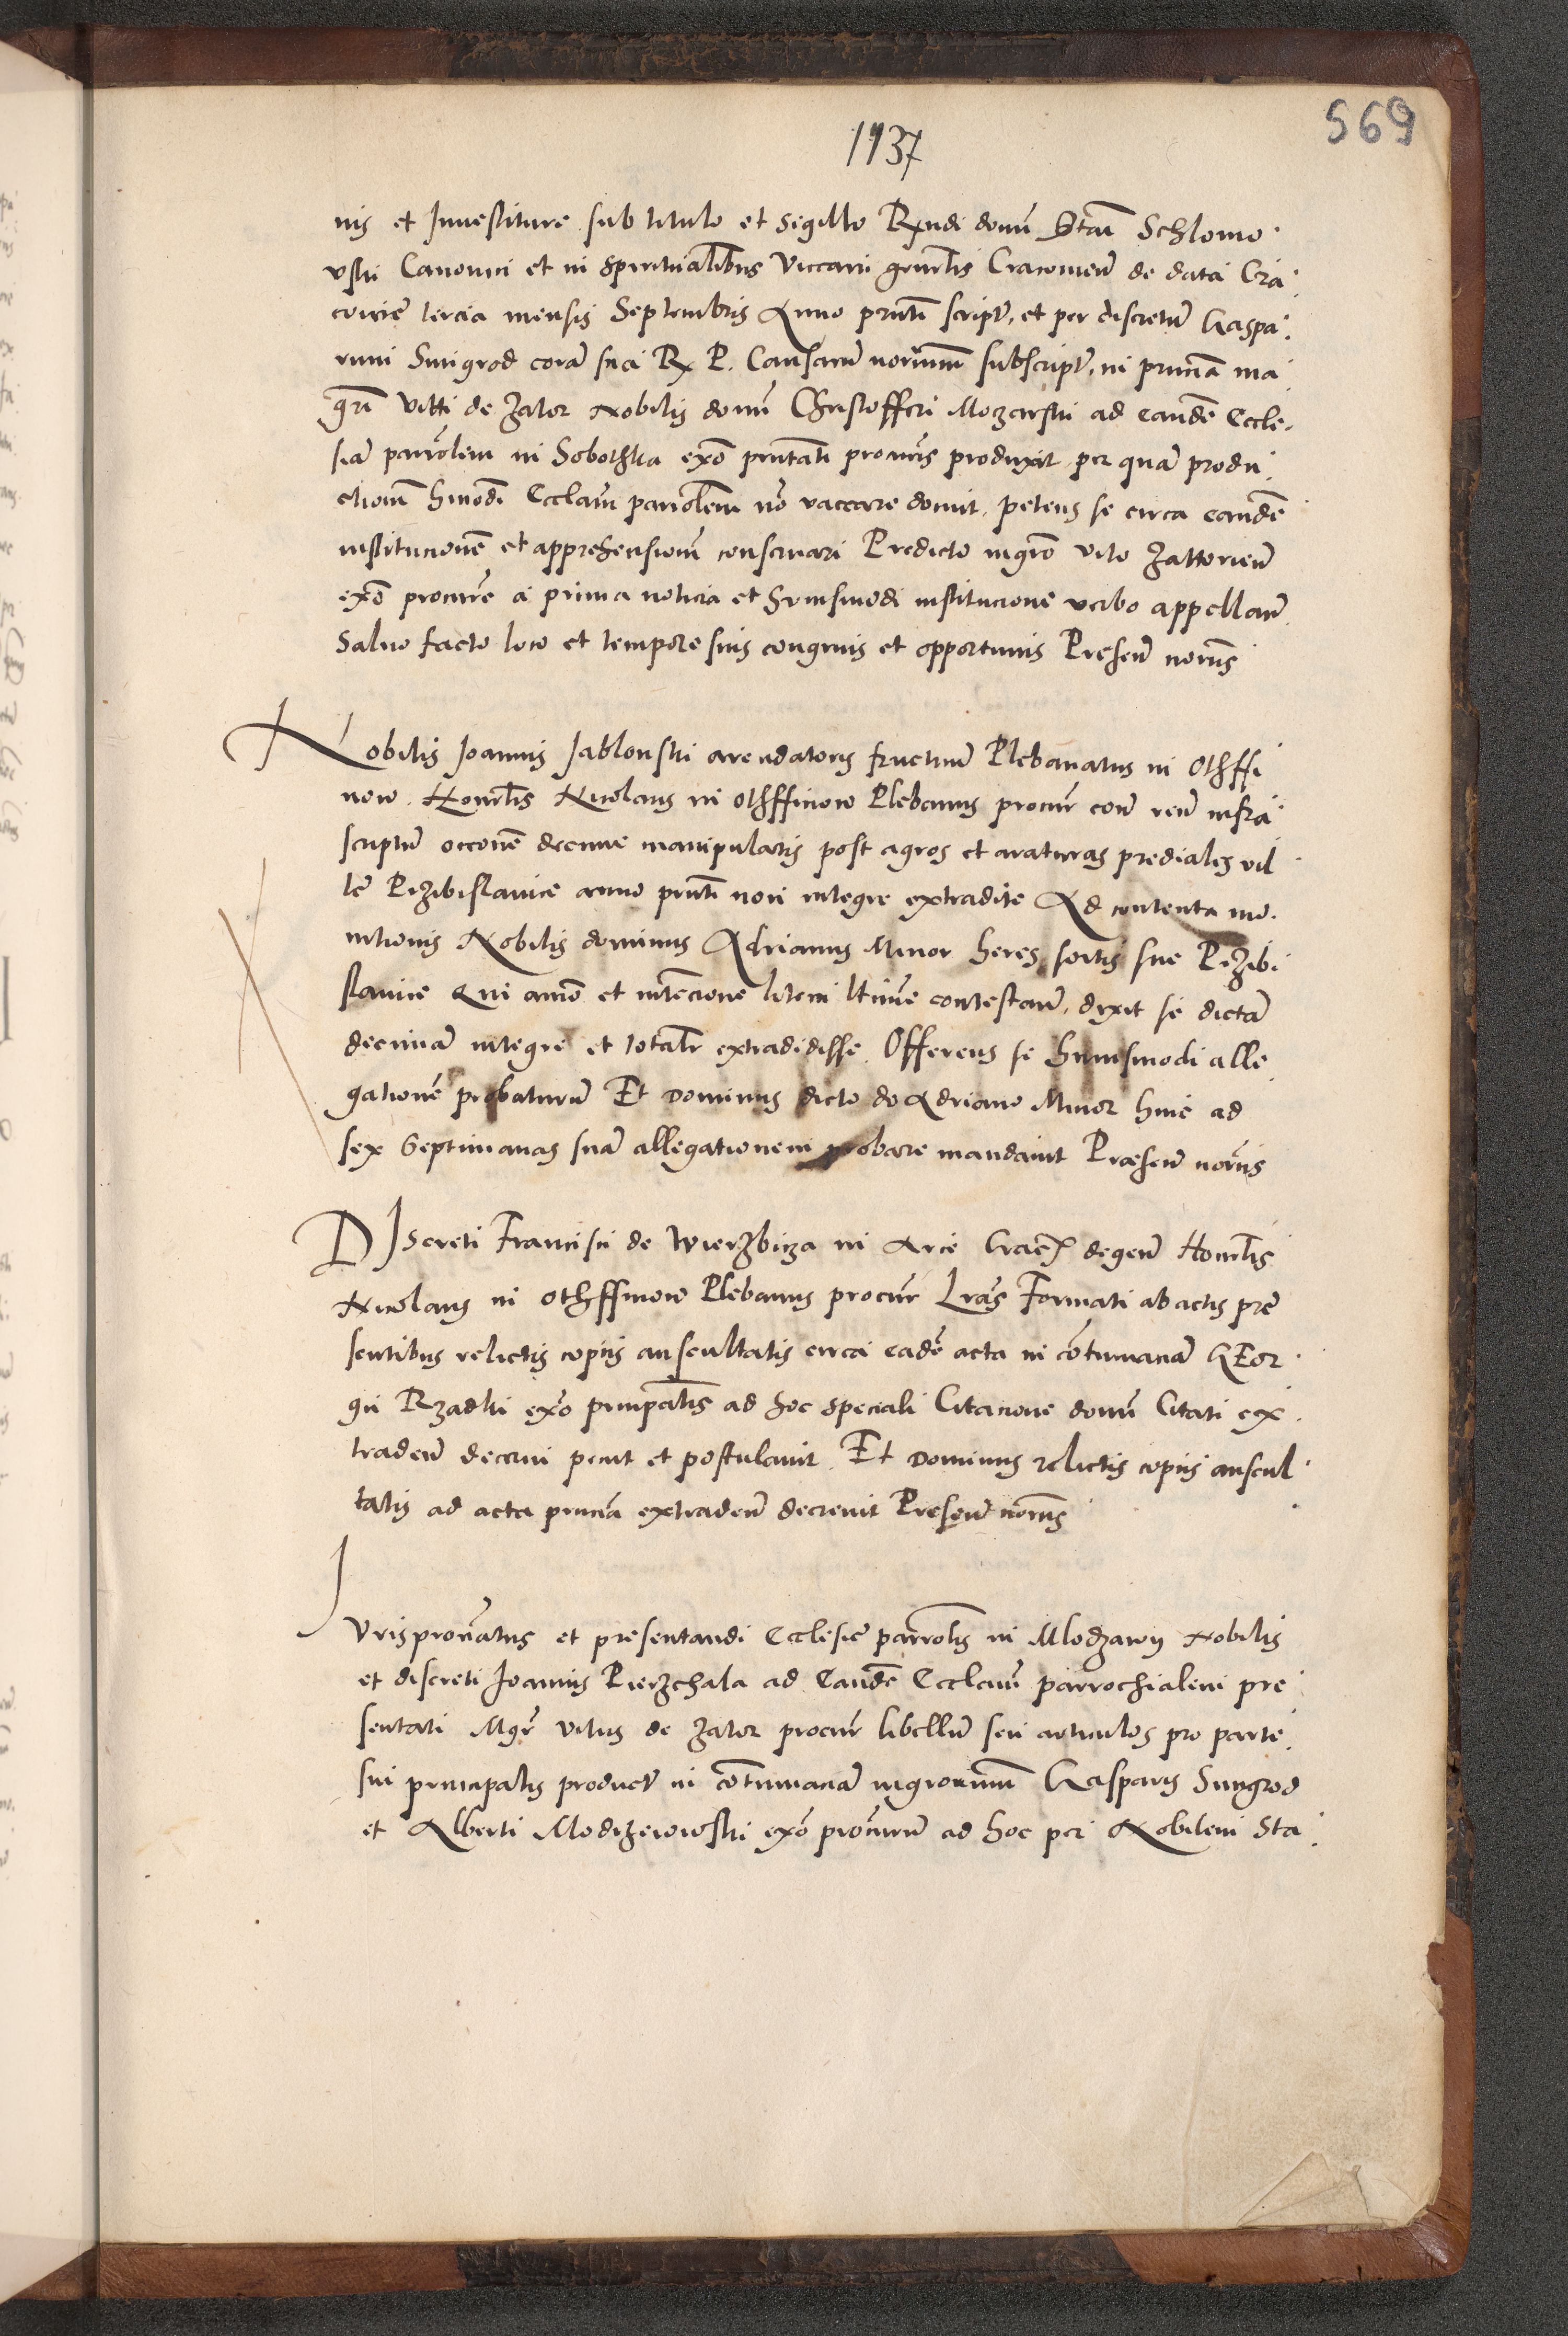 569
1137
nis et Investiture sub titulo et sigillo Rndi domi Stai Schlomo
vski Canonici et in spiritualibus Viccarii gnralis Cracovien de data Cra
covie tercia mensis Septembris Anno prnti script, et per discretum Caspa
rum Smigrod cora sua R P. Causarum norium subscript, in prnciam ma
gri Viti de Zator Nobilis domi Christofferi Mozarski ad eande Eccle
siam parrolem in Sobothka exo prntati procuris produxit per quam produ
ctionem hmodi Ecclaam parrolem no vaccare docuit, petens se circa eande
institucionem et apprehensionem conservari Predicto mgro Vito Zattorien
exo procure a prima noticia et huiusmodi institucione verbo appellan
Salvo facto loco et tempore suis congruis et opportunis Presen norus
Nobilis Joannis Jablonski arendatoris fructuum Plebanatus in Othffi
now. Honrlis Nicolaus in Othffinow Plebanus procur con reum infra
scriptum occone decime manipularis post agros et araturas prediales vil
le Przibislavice anno prnti non integre extradite Ad contenta mo
nitionis Nobilis dominus Adrianus Minor heres sortis sue Przibi
slavice Qui animo et intencione litem ltime contestan, dixit se dictam
decimam integre et totalr extradidisse. Offerens se huiusmodi alle
gationem probaturum Et Dominus dicto do Adriano Minor hinc ad
sex Septimanas suam allegationem probare mandavit Presen norus
Discreti Francisci de Wierzbicza in Arce Crac degen Honrlis
Nicolaus in Othffinow Plebanus procur Lras Formati ab actis pre
sentibus relictis copiis auscultatis circa eadem acta in contumaciam GEor
gii Rzadki exo principalis ad hoc speciali Citacione domi Citati ex
traden decerni peciit et postulavit. Et Dominus relictis copiis auscul
tatis ad acta prncia extraden decrevit Presen norus
Jurispronatus et presentandi Ecclesie parrolis in Mlodzawy Nobilis
et discreti Joannis Pierzchala ad Eande Ecclaam parrochialem pre
sentati Mgr Vitus de Zator procur libellum seu articulos pro parte
sui principalis product in contumaciam mgrorum Casparis Smigrod
et Alberti Modrzewowski exo procurum ad hoc per Nobilem Sta